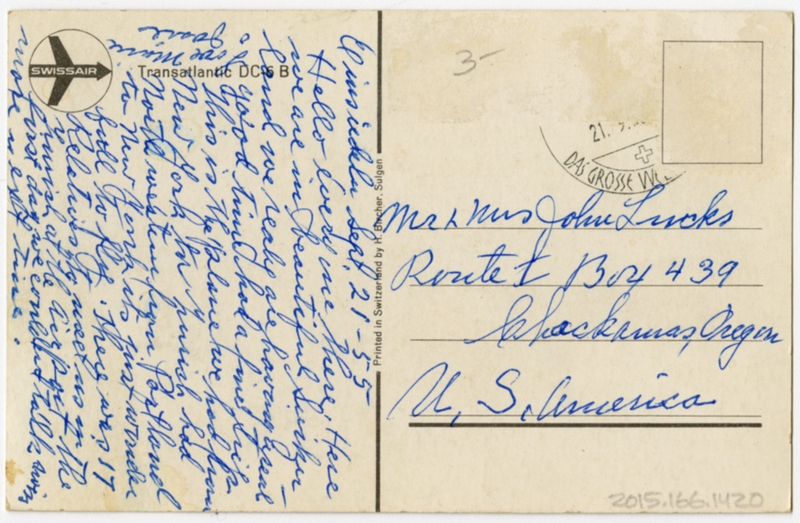 SWISSAIR
Transatlantic DC-6 B
Einsiedeln Sept. 21-55
Hello Everyone there, Here
we are in beautiful Switzer-
land we realy are having a real
good time, had a fine trip.
This is the plane we had from
New York to Zurich had
North western from Portland
to New York its just wonder
full to fly. There was 17
Relatives to meet us in
Zurich at the airport the
first day we couldnt talk
more next time.
Printed in Switzerland by H. Brucher, Sulgen
3-
21. 9.
DAS GROSSE WE
Mr & Mrs John Lucks
Route 1 Box 439
Clackamas, Oregon
U. S. America
2015.166.1420